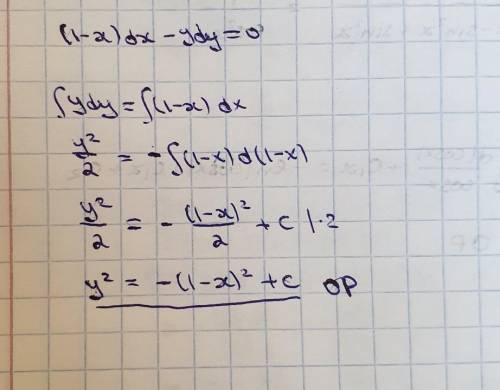 (1-x)dx - ydy = 0
∫ydy = ∫(1-x) dx
y²/2 = -∫(1-x)d(1-x)
y²/2 = - (1-x)²/2 + C |·2
y² = -(1-x)² + C OP